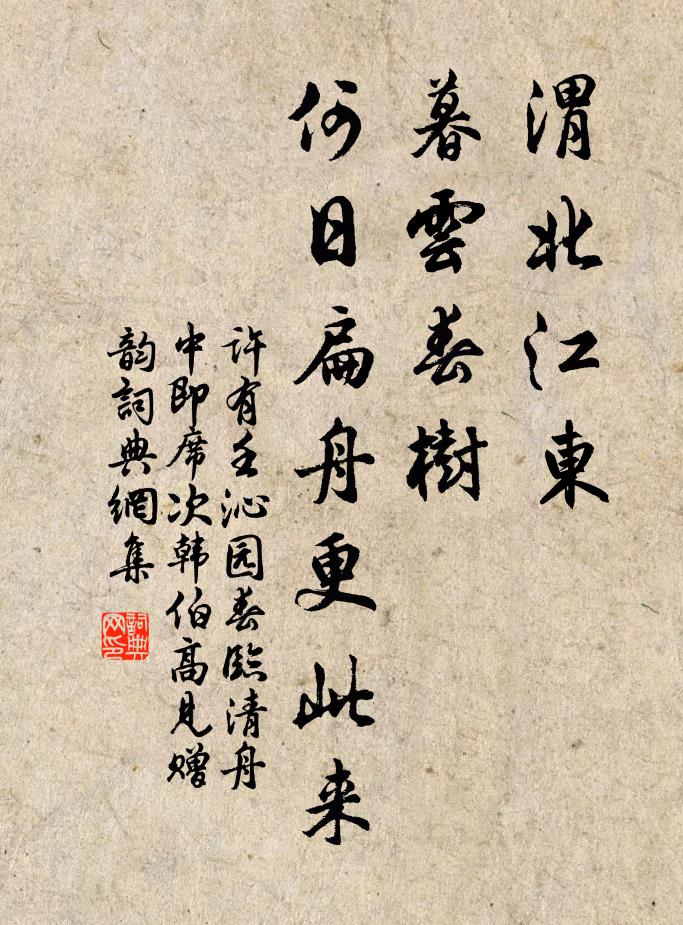 渭北江東
暮雲春樹
何日扁舟更此来
许有壬沁园春臨清舟
中即席次韩伯高見赠
韵詞典網集
詞典
网印